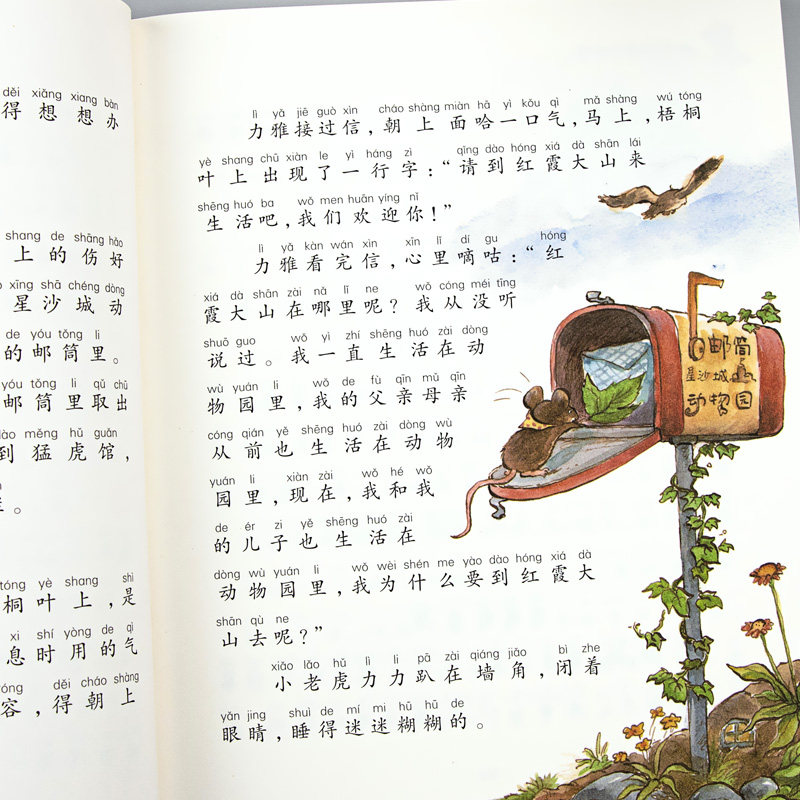 děi xiǎng xiang bàn
得 想 想 办
shang de shāng hǎo
上 的 伤 好
xīng shā chéng dòng
星 沙 城 动
de yóu tǒng li
的 邮 筒 里 。
yóu tǒng li qǔ chū
邮 筒 里 取 出
dào měng hǔ guǎn
到 猛 虎 馆 ,
tóng yè shang shì
桐 叶 上 , 是
xi shí yòng de qì
息 时 用 的 气
děi cháo shàng
容 , 得 朝 上
lì yǎ jiē guò xìn cháo shàng miàn hā yì kǒu qì mǎ shàng wú tóng
力 雅 接 过 信 , 朝 上 面 哈 一 口 气 , 马 上 , 梧 桐
yè shang chū xiàn le yì háng zì qǐng dào hóng xiá dà shān lái
叶 上 出 现 了 一 行 字 : “ 请 到 红 霞 大 山 来
shēng huó ba wǒ men huān yíng nǐ
生 活 吧 , 我 们 欢 迎 你 ! ”
lì yǎ kàn wán xìn xīn lǐ dí gu hóng
力 雅 看 完 信 , 心 里 嘀 咕 : “ 红
xiá dà shān zài nǎ lǐ ne wǒ cóng méi tīng
霞 大 山 在 哪 里 呢 ? 我 从 没 听
shuō guo wǒ yì zhí shēng huó zài dòng
说 过 。 我 一 直 生 活 在 动
wù yuán li wǒ de fù qīn mǔ qīn
物 园 里 , 我 的 父 亲 母 亲
cóng qián yě shēng huó zài dòng wù
从 前 也 生 活 在 动 物
yuán li xiàn zài wǒ hé wǒ
园 里 , 现 在 , 我 和 我
de ér zi yě shēng huó zài
的 儿 子 也 生 活 在
dòng wù yuán li wǒ wèi shén me yào dào hóng xiá dà
动 物 园 里 , 我 为 什 么 要 到 红 霞 大
shān qù ne
山 去 呢 ? ”
xiǎo lǎo hǔ lì li pā zài qiáng jiǎo bì zhe
小 老 虎 力 力 趴 在 墙 角 , 闭 着
yǎn jing shuì de mí mi hū hū de
眼 睛 , 睡 得 迷 迷 糊 糊 的 。
邮 筒
星 沙 城
动 物 园